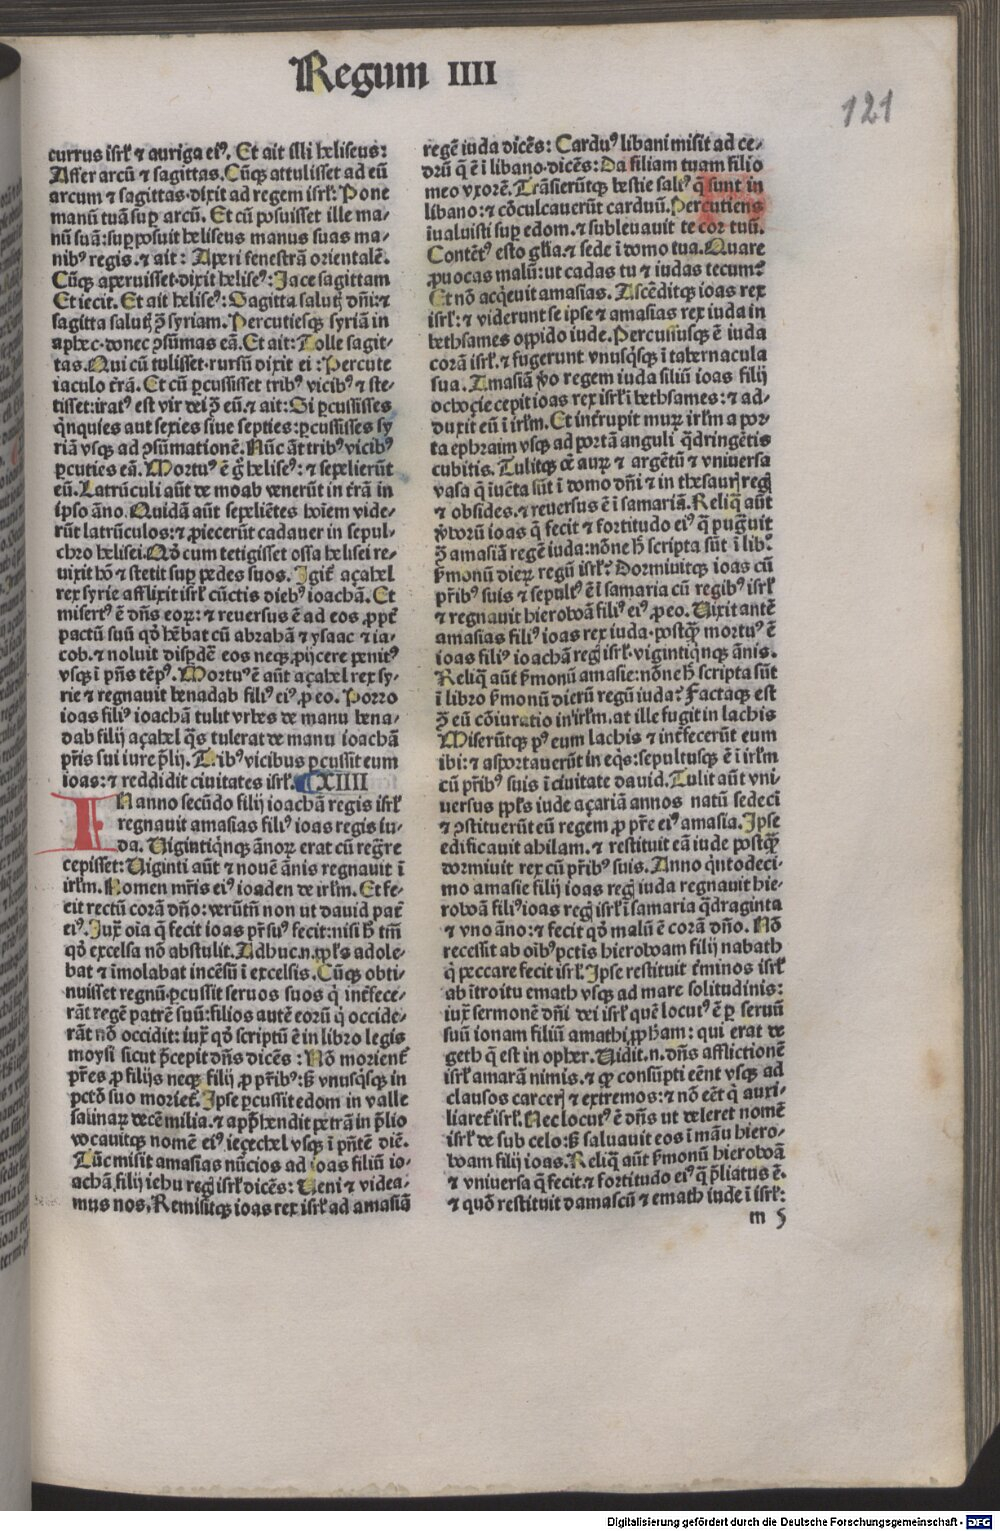 Regum IIII
121
currus isrl̄ ⁊ auriga ei⁹. Et ait illi heliseus:
Affer arcū ⁊ sagittas. Cūq̄ attulisset ad eū
arcum ⁊ sagittas·dixit ad regem isrl̄: Pone
manū tuā suꝑ arcū. Et cū posuisset ille ma/
nū suā: suꝑposuit heliseus manus suas ma/
nib⁹ regis.⁊ ait: Aperi fenestrā orientalē.
Cūq̄ aperuisset·dixit helise⁹: Jace sagittam
Et iecit. Et ait helise⁹: Sagitta salutꝭ dn̄i:⁊
sagitta salutꝭ ↄ̄ syriam. Percutiesq̄ syriā in
aphec·donec ↄsūmas eā. Et ait: Tolle sagit/
tas. Qui cū tulisset·rursū dixit ei: Percute
iaculo t̄rā. Et cū ꝑcussisset trib⁹ vicib⁹ ⁊ ste/
tisset: irat⁹ est vir dei ↄ̄ eū.⁊ ait: Si ꝑcussisses
q̄nquies aut sexies siue septies: ꝑcussisses sy
riā vsq̄ ad ↄsūmationē. Nūc āt trib⁹ vicib⁹
ꝑcuties eā. Mortu⁹ ē g̊ helise⁹: ⁊ sepelierūt
eū. Latrūculi aūt de moab venerūt in t̄rā in
ipso āno. Quidā aūt sepeliētes hoīem vide/
rūt latrūculos:⁊ ꝓiecerūt cadauer in sepul/
chro helisei. Qd̄ cum tetigisset ossa helisei re/
uixit hō ⁊ stetit suꝑ pedes suos. Igit̄ açahel
rex syrie afflixit isrl̄ cūctis dieb⁹ ioachā. Et
misert⁹ ē dn̄s eoꝝ: ⁊ reuersus ē ad eos ꝓpt̄
pactū suū qd̄ hēbat cū abrahā ⁊ ysaac ⁊ ia/
cob.⁊ noluit disꝑdē eos neq̄ ꝓijcere penit⁹
vsq̄ ī pn̄s tēp⁹. Mortu⁹ ē aūt açahel rex sy/
rie ⁊ regnauit benadab fili⁹ ei⁹ ꝓ eo. Porro
ioas fili⁹ ioachā tulit vrbes de manu bena/
dab filij açahel q̄s tulerat de manu ioachā
pr̄is sui iure p̄lij. Trib⁹ vicibus ꝑcussit eum
ioas: ⁊ reddidit ciuitates isrl̄. XIIII
IN anno secūdo filij ioachā regis isrl̄
regnauit amasias fili⁹ ioas regis iu/
da. Uigintiqnq̄ ānoꝝ erat cū reḡre
cepisset: Uiginti aūt ⁊ nouē ānis regnauit ī
irl̄m. Nomen mr̄is ei⁹ ioaden de irl̄m. Et fe/
cit rectū corā dn̄o: verūtn̄ non ut dauid pat̄
ei⁹. Iux̄ oīa q̄ fecit ioas pr̄ su⁹ fecit: nisi h̄ tm̄
qd̄ excelsa nō abstulit. Adhuc.n. ppl̄s adole/
bat ⁊ īmolabat incēsū ī excelsis. Cūq̄ obti/
nuisset regnū·ꝑcussit seruos suos qui int̄fece/
rāt regē patrē suū: filios autē eorū q̄ occide/
rāt nō occidit: iux̄ qd̄ scriptū ē in libro legis
moysi sicut p̄cepit dn̄s dicēs: Nō morient̄
pr̄es ꝓ filijs neq̄ filij ꝓ pr̄ib⁹: s̄ vnusq̄sq̄ in
pctō suo moriet̄. Ipse ꝑcussit edom in valle
salinaꝝ decē milia.⁊ app̄hendit petrā in p̄lio
vocauitq̄ nomē ei⁹ ieçechel vsq̄ ī pn̄tē diē.
Tūc misit amasias nūcios ad ioas filiū io/
achā filij iehu regꝭ isrl̄ dicēs: Ueni ⁊ videa/
mus nos. Remisitq̄ ioas rex isrl̄ ad amasiā
regē iuda dicēs: Cardu⁹ libani misit ad ce/
drū q̄ ē ī libano·dicēs: Da filiam tuam filio
meo vxorē. Trāsierūtq̄ bestie salt⁹ q̄ sunt in
libano:⁊ cōculcauerūt carduū. Percutiens
īualuisti suꝑ edom.⁊ subleuauit te cor tuū.
Contēt⁹ esto gl̄ia:⁊ sede ī domo tua. Quare
ꝓuocas malū: ut cadas tu ⁊ iudas tecum?
Et nō acq̄euit amasias. Ascēditq̄ ioas rex
isrl̄: ⁊ viderunt se ipse ⁊ amasias rex iuda in
bethsames oppido iude. Percussusq̄ ē iuda
corā isrl̄.⁊ fugerunt vnusq̄sq̄ ī tabernacula
sua. Amasiā v̄o regem iuda filiū ioas filij
ochoçie cepit ioas rex isrl̄ ī bethsames:⁊ ad/
duxit eū ī irl̄m. Et int̄rupit muꝝ irl̄m a por/
ta ephraim vsq̄ ad portā anguli q̄dringētis
cubitis. Tulitq̄ oē auꝝ ⁊ argētū ⁊ vniuersa
vasa q̄ īuēta sūt ī domo dn̄i ⁊ in thesaurꝭ regꝭ
⁊ obsides.⁊ reuersus ē ī samariā. Reliq̄ aūt
v̄borū ioas q̄ fecit ⁊ fortitudo ei⁹ q̄ pugauit
ↄ̄ amasiā regē iuda: nōne h̄ scripta sūt ī lib⁹
s̄monū dieꝝ regū isrl̄? Dormiuitq̄ ioas cū
pr̄ib⁹ suis ⁊ sepult⁹ ē ī samaria cū regib⁹ isrl̄
⁊ regnauit hieroboam fili⁹ ei⁹ ꝓ eo. Uixit antē
amasias fili⁹ ioas rex iuda·postq̄ mortu⁹ ē
ioas fili⁹ ioachā regꝭ isrl̄·vigintiqnq̄ ānis.
Reliq̄ aūt s̄monū amasie: nōne h̄ scripta sūt
ī libro s̄monū dierū regū iuda? Factaq̄ est
ↄ̄ eū cōiuratio in irl̄m. at ille fugit in lachis
Miserūtq̄ p⁹ eum lachis ⁊ int̄fecerūt eum
ibi: ⁊ asportauerūt in eq̄s: sepultusq̄ ē ī irl̄m
cū pr̄ib⁹ suis ī ciuitate dauid. Tulit aūt vni/
uersus ppl̄s iude açariā annos natū sedecī
⁊ ↄstituerūt eū regem ꝓ pr̄e ei⁹ amasia. Ipse
edificauit ahilam.⁊ restituit eā iude postq̄
dormiuit rex cū pr̄ib⁹ suis. Anno q̄ntodeci/
mo amasie filij ioas regꝭ iuda regnauit hie/
roboā fili⁹ ioas regꝭ isrl̄ ī samaria q̄draginta
⁊ vno āno:⁊ fecit qd̄ malū ē corā dn̄o. Nō
recessit ab oīb⁹ pctis hieroboam filij nabath
q̄ peccare fecit isrl̄. Ipse restituit t̄minos isrl̄
ab ītroitu emath vsq̄ ad mare solitudinis:
iux̄ sermonē dn̄i dei isrl̄ quē locut⁹ ē ꝑ seruū
suū ionam filiū amathi ꝓpham: qui erat de
geth q̄ est in opher. Uidit.n. dn̄s afflictionē
isrl̄ amarā nimis.⁊ ꝙ consūpti eēnt vsq̄ ad
clausos carcerꝭ ⁊ extremos:⁊ nō eēt q̄ auxi/
liaret̄ isrl̄. Nec locut⁹ ē dn̄s ut deleret nomē
isrl̄ de sub celo: s̄ saluauit eos ī māu hiero/
boam filij ioas. Reliq̄ aūt s̄monū hieroboā
⁊ vniuersa q̄ fecit.⁊ fortitudo ei⁹ q̄ p̄liatus ē.
⁊ quō restituit damascū ⁊ emath iude ī isrl̄:
m 5
Digitalisierung gefördert durch die Deutsche Forschungsgemeinschaft - DFG